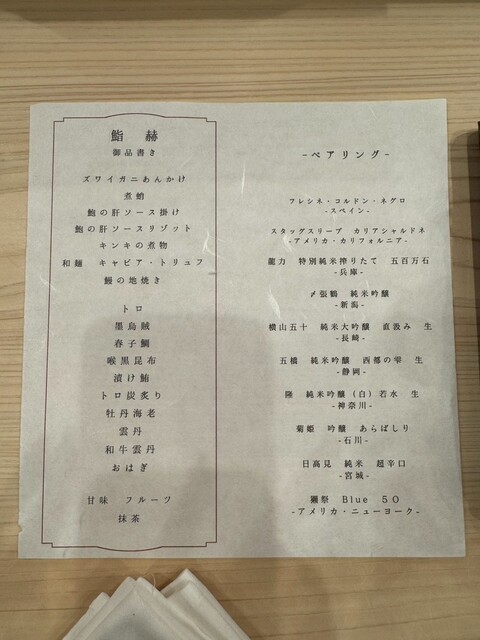 鮨 赫
御品書き
ズワイガニあんかけ
煮蛸
鮑の肝ソース掛け
鮑の肝ソースリゾット
キンキの煮物
和麺 キャビア・トリュフ
鰻の地焼き
トロ
墨烏賊
春子鯛
喉黒昆布
漬け鮪
トロ炭炙り
牡丹海老
雲丹
和牛雲丹
おはぎ
甘味 フルーツ
抹茶
-ペアリング-
フレシネ・コルドン・ネグロ
-スペイン-
スタッグスリープ カリアシャルドネ
-アメリカ・カリフォルニア-
龍力 特別純米搾りたて 五百万石
-兵庫-
〆張鶴 純米吟醸
-新潟-
横山五十 純米大吟醸 直汲み 生
-長崎-
五橋 純米吟醸 西都の雫 生
-静岡-
隆 純米吟醸(白)若水 生
-神奈川-
菊姫 吟醸 あらばしり
-石川-
日高見 純米 超辛口
-宮城-
獺祭 Blue 50
-アメリカ・ニューヨーク-